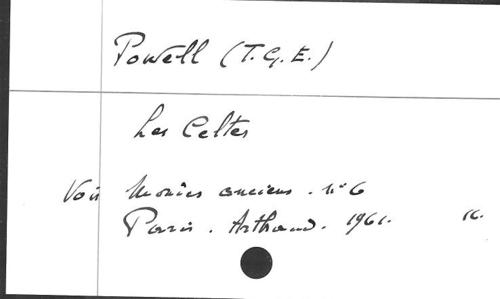 Powell (T.G.E.)
Les Celtes
Voir Mondes anciens. n° 6
Paris. Arthaud. 1961.